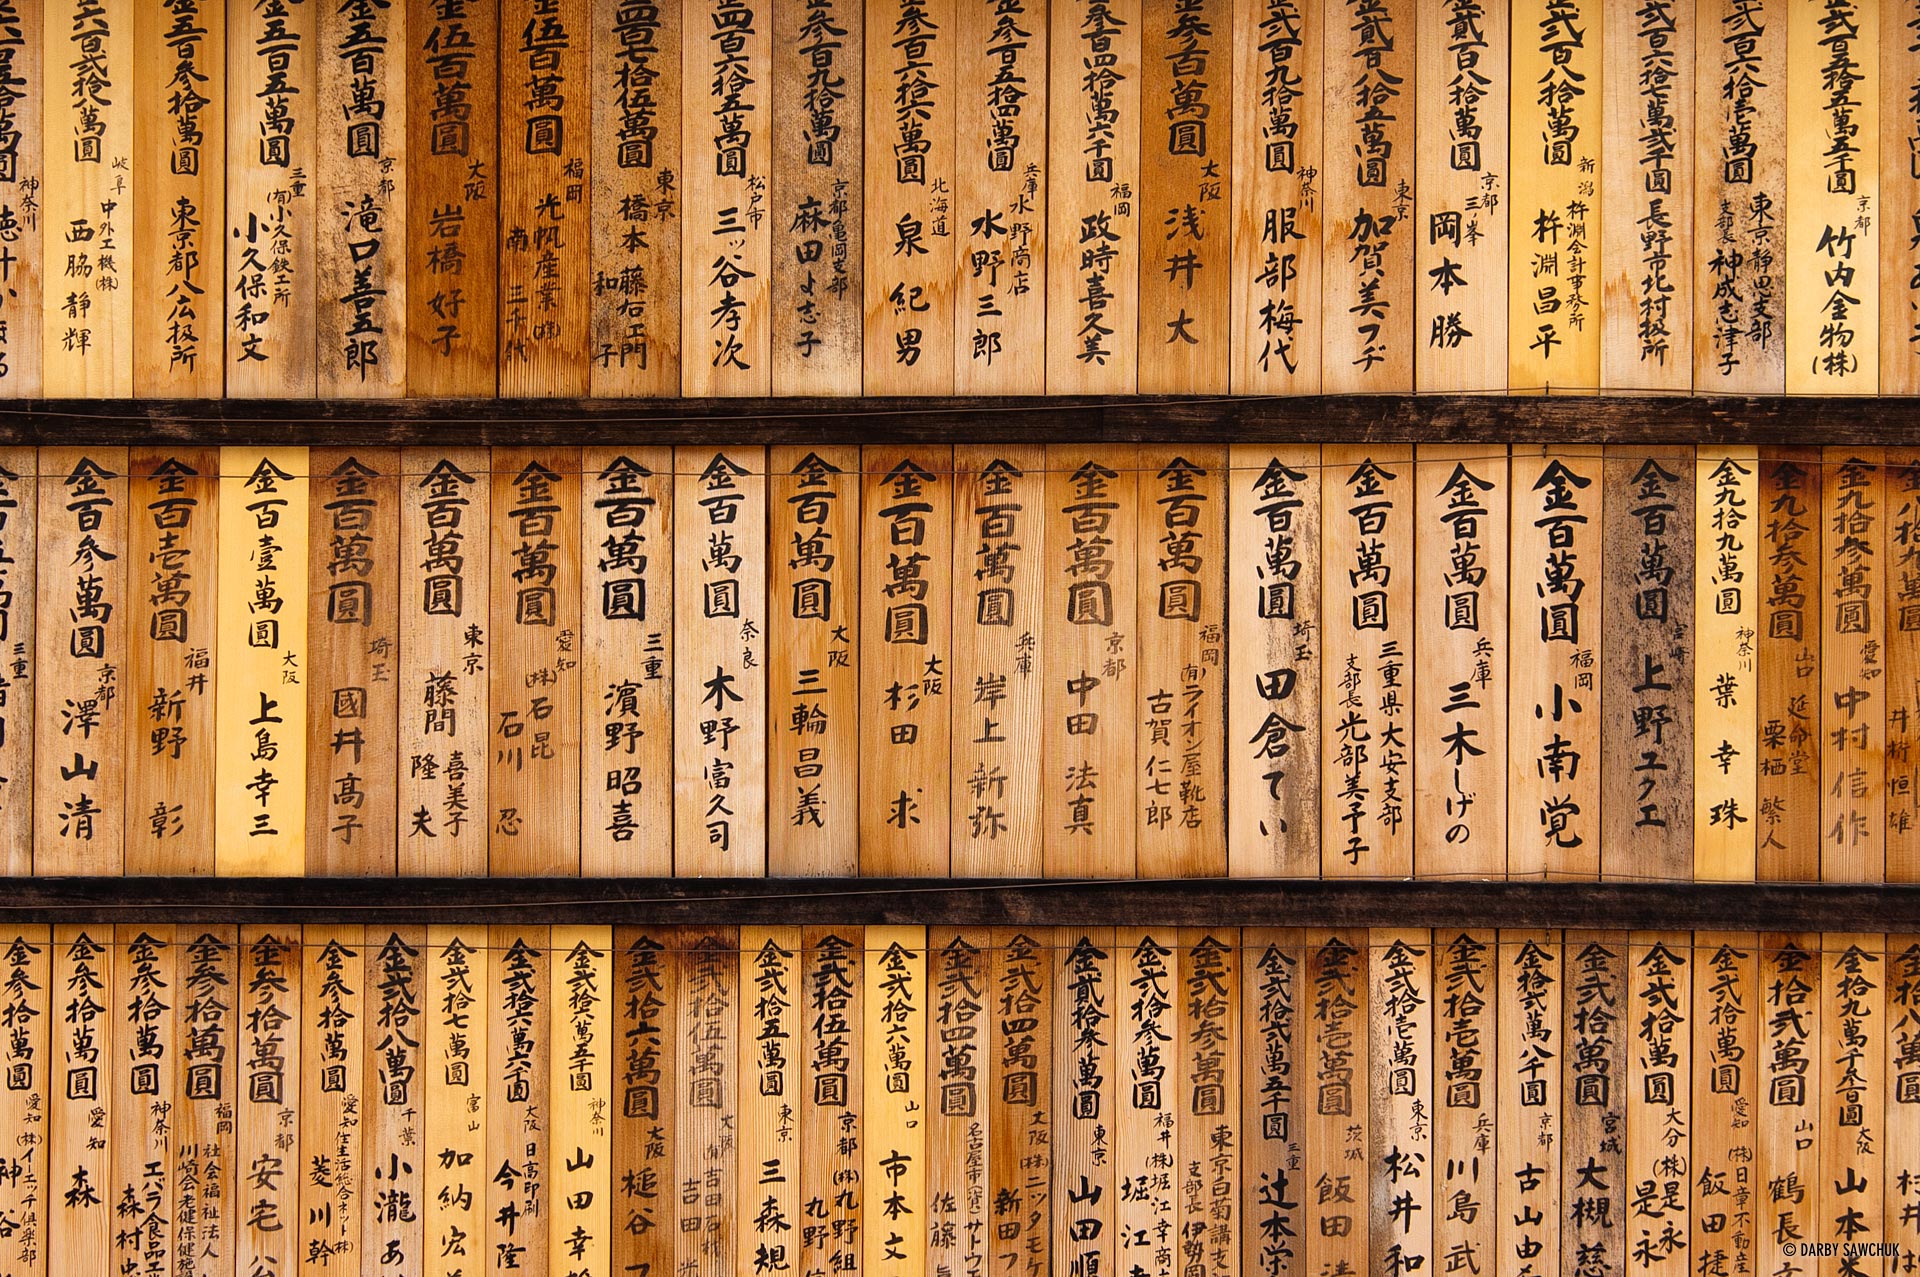 金弐百五拾五萬五千圓
京都
竹内金物(株)
弐百六拾壱萬圓
東京静思支部
支部長 神成志津子
弐百六拾七萬弐千圓
長野市北村扱所
金弐百八拾萬圓
新潟
杵淵会計事務所
杵淵昌平
金貮百八拾萬圓
京都
三ッ峯
岡本勝
金貮百八拾五萬圓
東京
加賀美フヂ
弐百九拾萬圓
神奈川
服部梅代
金参百萬圓
大阪
浅井大
参百四拾萬六千圓
福岡
政時喜久美
金参百五拾四萬圓
兵庫
水野商店
水野三郎
金参百六拾六萬圓
北海道
泉紀男
金参百九拾萬圓
京都亀岡支部
麻田よ志子
金四百六拾五萬圓
松戸市
三ッ谷孝次
四百七拾伍萬圓
東京
藤石工門
橋本和子
金伍百萬圓
福岡
光帆産業(株)
南三千代
金伍百萬圓
大阪
岩橋好子
金五百萬圓
京都
滝口善五郎
金五百五萬圓
三重
(有)小久保鉄工所
小久保和文
金五百参拾萬圓
東京都八広扱所
六百弐拾八萬圓
岐阜
中外工機(株)
西脇静輝
神奈川
金九拾参萬圓
愛知
中村信作
金九拾参萬圓
山口
延命堂
栗栖繁人
金九拾九萬圓
神奈川
葉幸珠
金百萬圓
宮崎
上野ユクエ
金百萬圓
福岡
小南覚
金百萬圓
兵庫
三木しげの
金百萬圓
三重県大安支部
支部長 光部美予子
金百萬圓
埼玉
田倉てい
金百萬圓
福岡
(有)ライオン屋靴店
古賀仁七郎
金百萬圓
京都
中田法真
金百萬圓
兵庫
岸上新弥
金百萬圓
大阪
杉田求
金百萬圓
大阪
三輪昌義
金百萬圓
奈良
木野富久司
金百萬圓
三重
濵野昭喜
金百萬圓
愛知
(株)石昆
石川忍
金百萬圓
東京
藤間
喜美子
隆夫
金百萬圓
埼玉
國井髙子
金百壹萬圓
大阪
上島幸三
金百壱萬圓
福井
新野彰
金百参萬圓
京都
澤山清
三重
金拾九萬千参百圓
大阪
山本
金拾弐萬圓
山口
鶴長
金弐拾萬圓
愛知
(株)日章不動産
飯田捷
金弐拾萬圓
大分
(株)是永
是永
弐拾萬圓
宮城
大槻慈
金拾弐萬八千圓
京都
古山由
金弐拾壱萬圓
兵庫
川島武
金弐拾壱萬圓
東京
松井和
金弐拾壱萬圓
茨城
飯田
金弐拾弐萬五千圓
三重
辻本栄
金弐拾参萬圓
東京白菊講支
支部長 伊勢
金弐拾参萬圓
福井
(株)堀江幸商
堀江
金貮拾参萬圓
東京
山田順
金弐拾四萬圓
大阪
(株)ニッタモケ
新田
金弐拾四萬圓
名古屋市
サトウ
佐藤
金弐拾六萬圓
山口
市本文
金弐拾伍萬圓
京都
(株)九野組
九野
金弐拾五萬圓
東京
三森規
金弐拾伍萬圓
大阪
吉田
金弐拾六萬圓
大阪
槌谷
金弐拾八萬五千圓
神奈川
山田幸
金弐拾六萬六千圓
大阪
日高印刷
今井隆
金弐拾七萬圓
富山
加納宏
金弐拾八萬圓
千葉
小瀧あ
金参拾萬圓
愛知
住生活総合ネット(株)
菱川幹
金参拾萬圓
京都
安宅公
金参拾萬圓
福岡
社会福祉法人
川崎会老健保健施設
金参拾萬圓
神奈川
エバラ食品工
森村忠
金参拾萬圓
愛知
森
金参拾萬圓
愛知
(株)イーエッチ倶楽部
神谷
© DARBY SAWCHUK